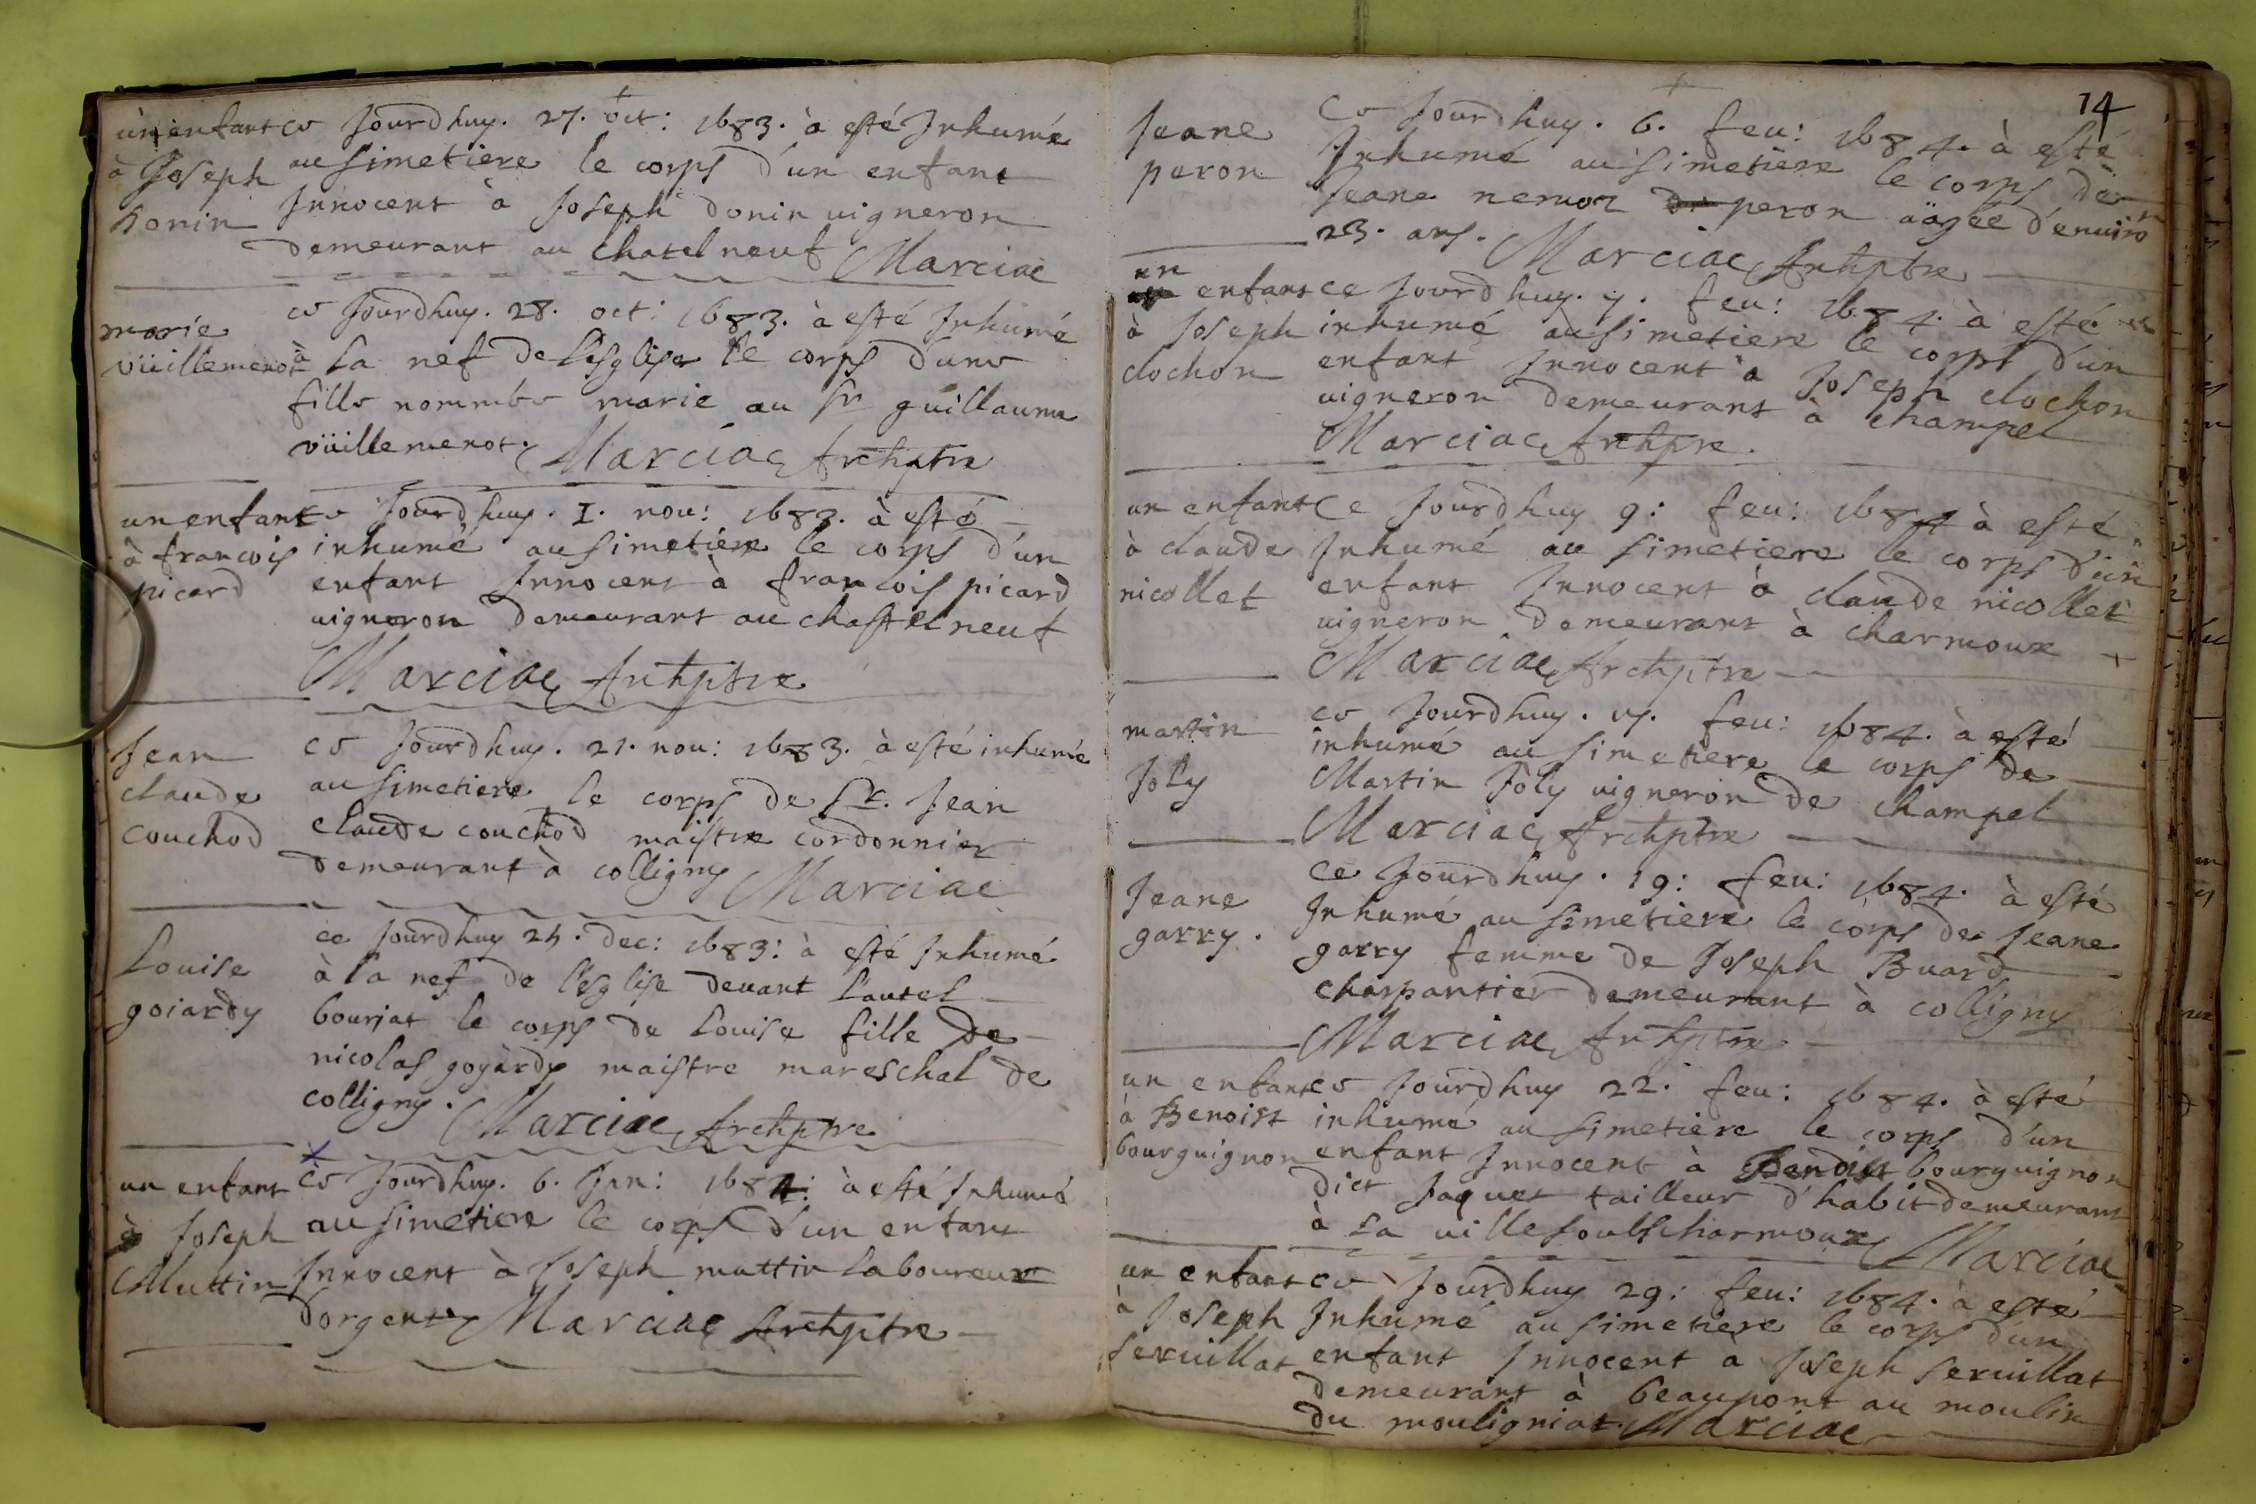 un enfant
à Joseph
Donin
ce Jourdhuy. 27. oct: 1683. à esté Inhumé
au simetiere le corps d'un enfant
Innocent à Joseph donin uigneron
demeurant au Chatelneuf Marciac
marie
vüillemenot
ce Jourdhuy. 28. oct: 1683. à esté Inhumé
à la nef de l'esglise le corps d'une
fille nommée marie au Sr guillaume
vüillemenot. Marciac Archptre
un enfant
à francois
picard
ce Jourdhuy. 1. nou: 1683. à esté
inhumé au simetiere le corps d'un
enfant Innocent à francois picard
uigneron demeurant au chastelneuf
Marciac Archptre
Jean
claude
couchod
ce Jourdhuy. 21. nou: 1683. à esté inhumé
au simetiere le corps de Sr. Jean
claude couchod maistre cordonnier
demeurant à colligny Marciac
Louise
goiardy
ce Jourdhuy 24. dec: 1683: à esté Inhumé
à la nef de l'esglise deuant l'autel
bourjat le corps de Louise fille de
nicolas goyardy maistre mareschal de
colligny. Marciac Archptre
un enfant
à Joseph
Muttin
ce Jourdhuy. 6. Jan: 1684: à esté Inhumé
au simetiere le corps d'un enfant
Innocent à Joseph muttin laboureur
d'orgent Marciac Archptre
14
Jeane
peron
ce Jourdhuy. 6. feu: 1684. à esté
Inhumé au simetiere le corps de
Jeane peron aagée d'enuiron
23. ans. Marciac Archptre
un
enfant
à Joseph
clochon
ce Jourdhuy. 7. feu: 1684. à esté
inhumé au simetiere le corps d'un
enfant Innocent à Joseph clochon
uigneron demeurant à champel
Marciac Archpre.
un enfant
à claude
nicollet
ce Jourdhuy 9: feu: 1684 à esté
Inhumé au simetiere le corps d'un
enfant Innocent à claude nicollet
uigneron demeurant à charmoux
Marciac Archptre
martin
Joly
ce Jourdhuy. 17. feu: 1684. à esté
inhumé au simetiere le corps de
Martin Joly uigneron de champel
Marciac Archptre
Jeane
garry.
ce Jourdhuy. 19: feu: 1684. à esté
Inhumé au simetiere le corps de Jeane
garry femme de Joseph Buard
charpantier demeurant à colligny
Marciac Archptre
un enfant
à Benoist
bourguignon
ce Jourdhuy 22. feu: 1684. à esté
inhumé au simetiere le corps d'un
enfant Innocent à Benoist bourguignon
dict Jaquet tailleur d'habit demeurant
à la uille soubs charmoux Marciac
un enfant
à Joseph
seruillat
ce Jourdhuy 29: feu: 1684. à esté
Inhumé au simetiere le corps d'un
enfant Innocent a Joseph seruillat
demeurant à beaupont au moulin
du mouligniat. Marciac